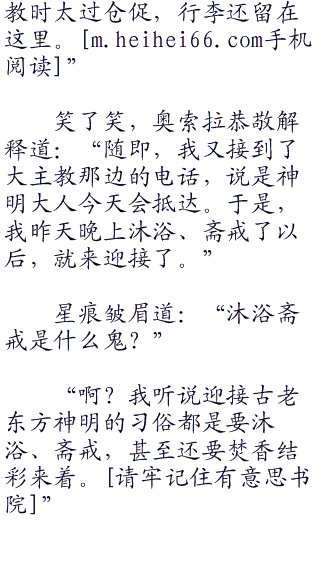 教时太过仓促，行李还留在
这里。[m.heihei66.com手机
阅读]”
笑了笑，奥索拉恭敬解
释道：“随即，我又接到了
大主教那边的电话，说是神
明大人今天会抵达。于是，
我昨天晚上沐浴、斋戒了以
后，就来迎接了。”
星痕皱眉道：“沐浴斋
戒是什么鬼？”
“啊？我听说迎接古老
东方神明的习俗都是要沐
浴、斋戒，甚至还要焚香结
彩来着。[请牢记住有意思书
院]”